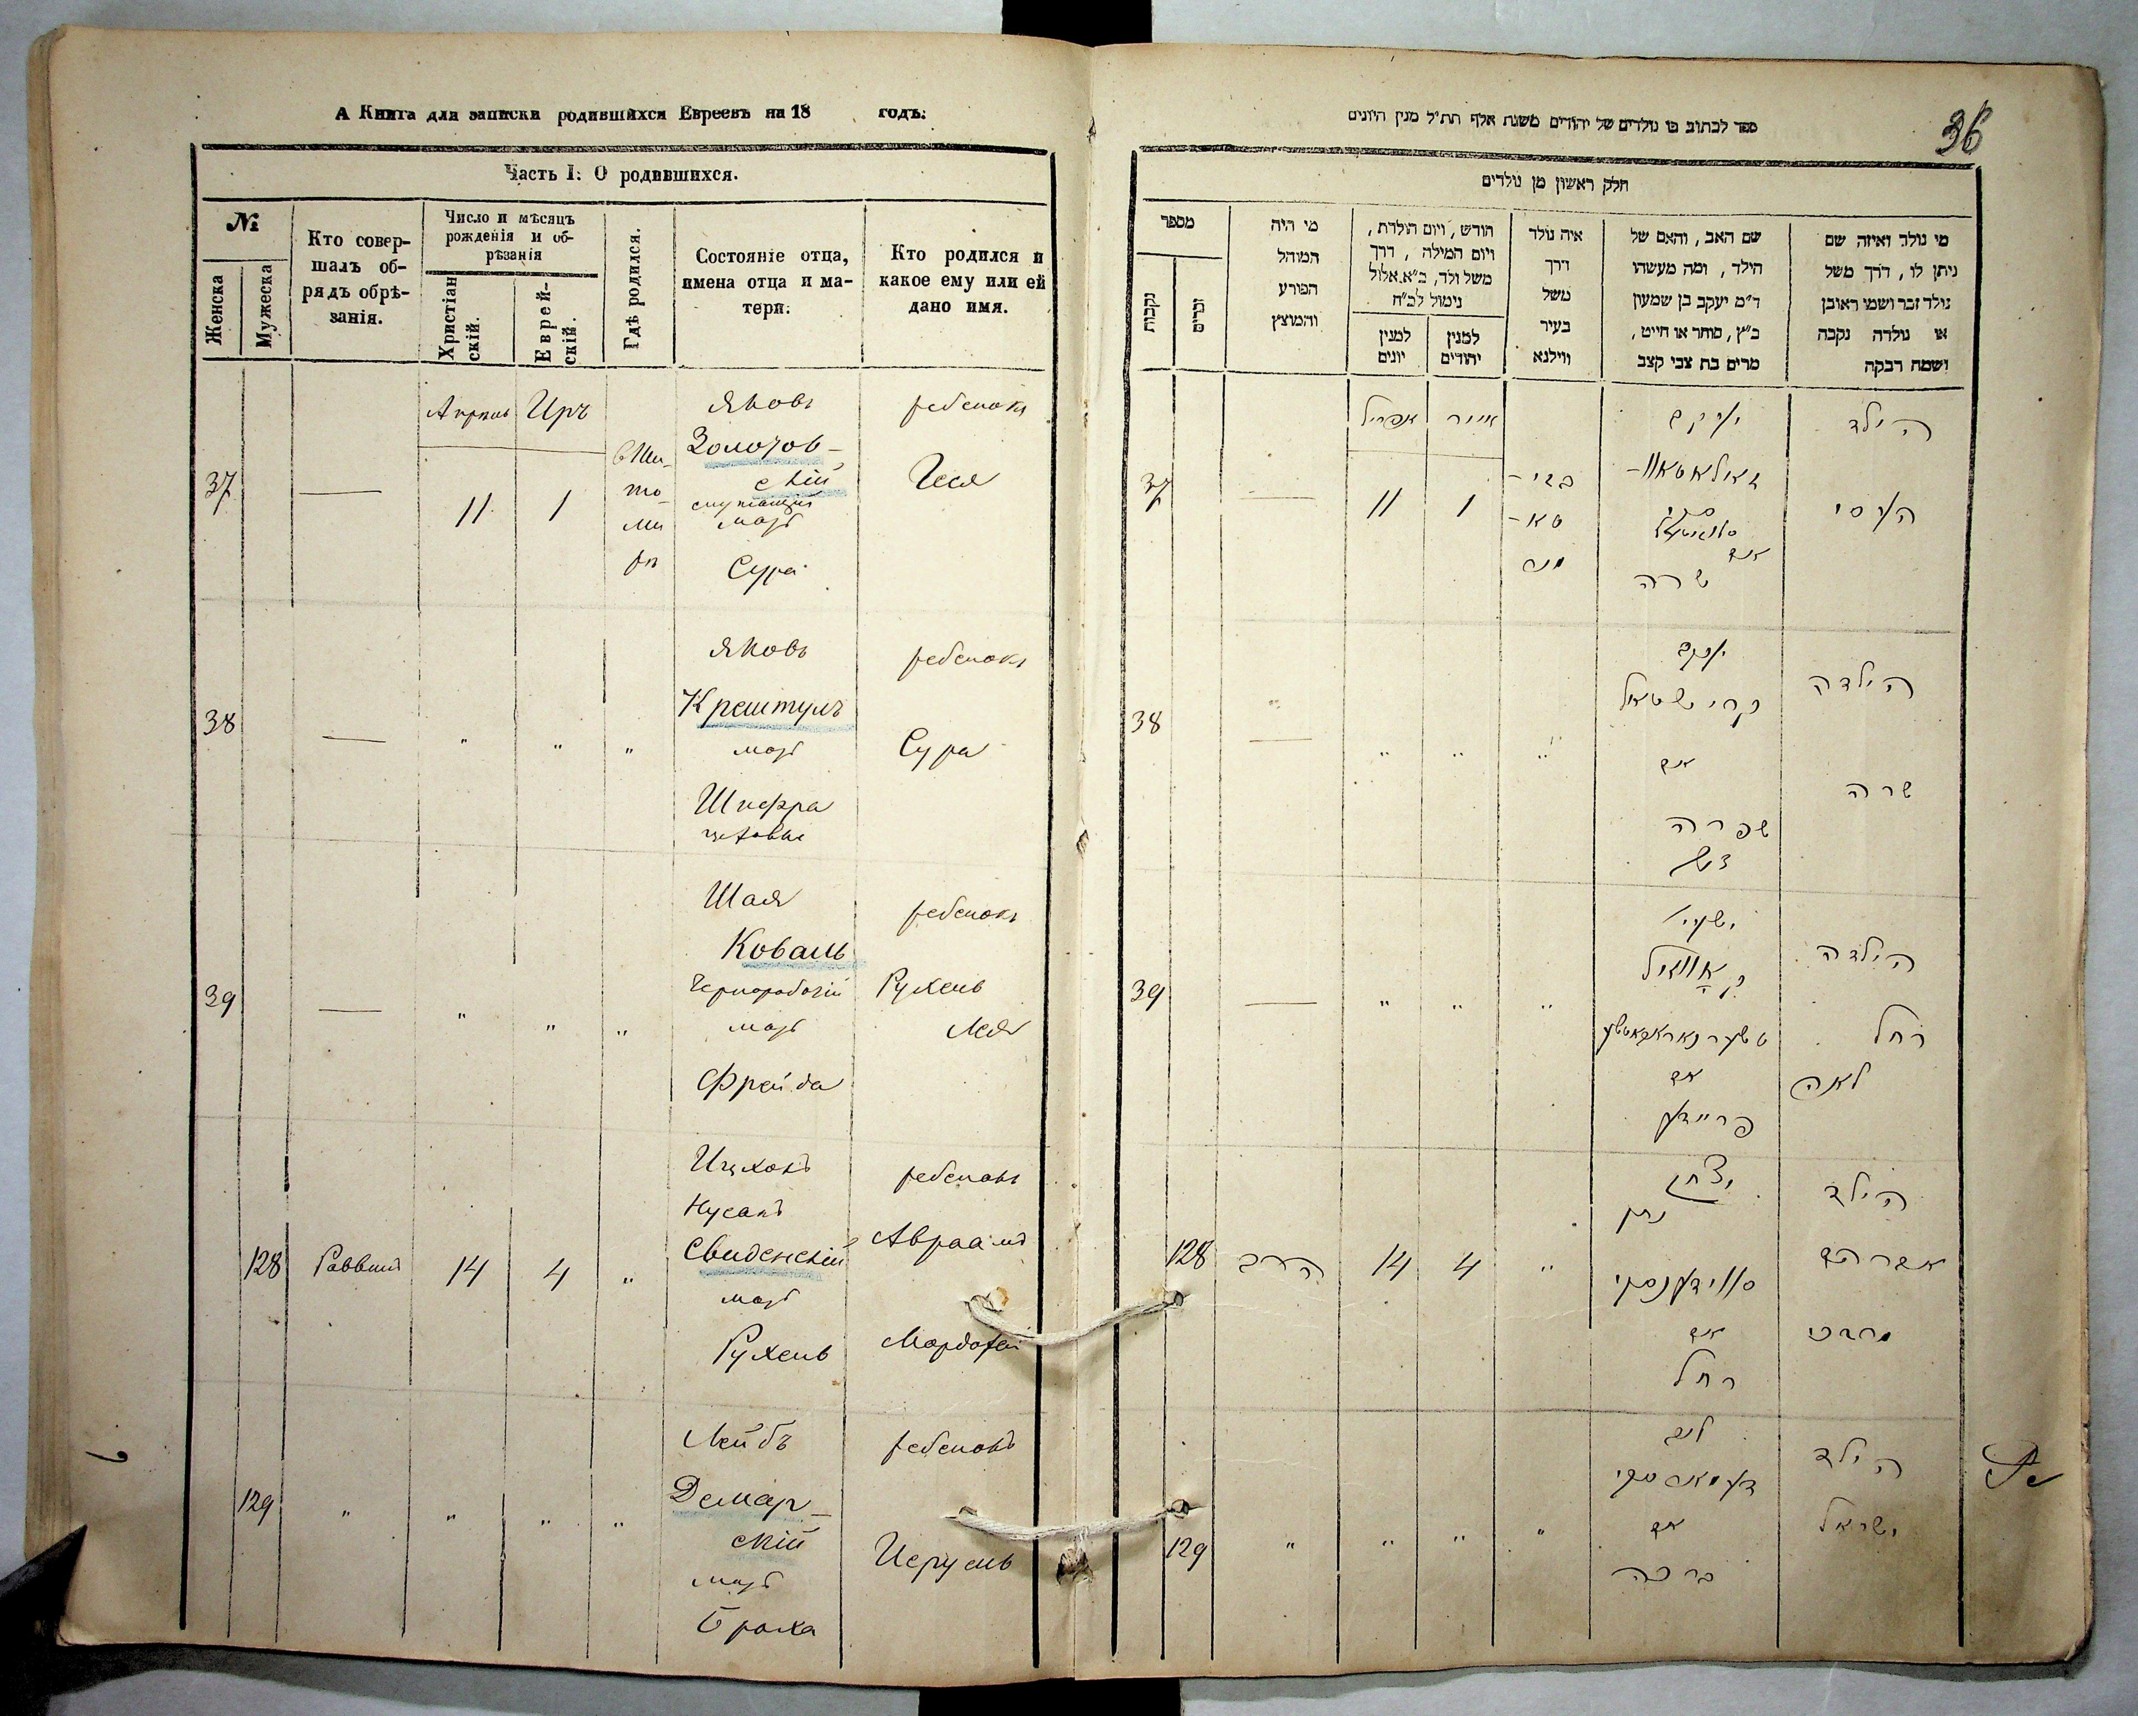 А Книга для записки родившихся Евреевъ на 18 годъ.
Часть I. О родившихся.
№
Женска
Мужеска
Кто совер-
шалъ об-
рядъ обрѣ-
занія.
Число и мѣсяцъ
рожденія и об-
рѣзанія
Христіан
скій.
Еврей-
скій.
Гдѣ родился.
Состояніе отца,
имена отца и ма-
тери.
Кто родился и
какое ему или ей
дано имя.
37
—
Апрель
11
Иръ
1
в Жи-
то-
ми
рѣ
Яковъ
Золотов-
скій
мать
Сура
ребенокъ
Геся
38
—
"
"
"
Яковъ
Крештулъ
мать
Шифра
ребенокъ
Сура
39
—
"
"
"
Шая
Коваль
Чернорабочій
мать
Фрейда
ребенокъ
Рухель
Лея
128
Раввинъ
14
4
"
Ицхокъ
Нусанъ
Свиденскій
мать
Рухель
ребенокъ
Авраамъ
Мордохай
129
"
"
"
"
Лейбъ
Демар-
скій
мать
Броха
ребенокъ
Исруель
ספר לכתוב בו נולדים של יהודים משנת אלף תת"ל מנין היונים
36
חלק ראשון מן נולדים
מספר
נקבות
זכרים
מי היה
המוהל
הפורע
והמוצץ
חודש, ויום הולדת,
ויום המילה, דרך
משל ולד, ב"א אלול
נימול לכ"ח
למנין
יונים
למנין
יהודים
איה נולד
דרך
משל
בעיר
ווילנא
שם האב, והאם של
הילד, ומה מעשהו
ד"מ יעקב בן שמעון
כ"ץ, סוחר או חייט,
מרים בת צבי קצב
מי נולד ואיזה שם
ניתן לו, דרך משל
נולד זכר ושמו ראובן
או נולדה נקבה
ושמה רבקה
37
—
אפריל
11
אייר
1
יעקב
זאלאטאוו-
סקי
אם
שרה
הילד
העסי
38
—
"
"
"
יעקב
קרישטאל
אם
שפרה
הילדה
שרה
39
—
"
"
"
ישעי'
קאוואל
טשערנאראבאטשע
אם
פריידע
הילדה
רחל
לאה
128
הרב
14
4
"
יצחק
נתן
סווידענסקי
אם
רחל
הילד
אברהם
מרדכי
129
"
"
"
"
ליב
דעמארסקי
אם
ברכה
הילד
ישראל